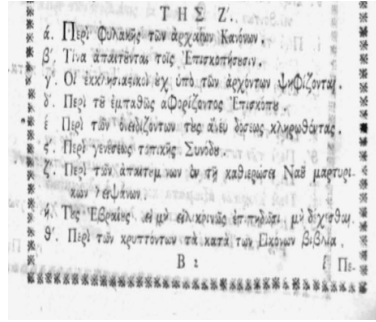 ΤΗΣ Ζ΄.
ά. Περὶ Φυλακῆς τῶν ἀρχαίων Κανόνων.
β΄. Τίνα ἀπαιτοῦνται τοῖς Ἐπισκοπήσεσιν.
γ΄. Οἱ ἐκκλησιαστικοὶ ὐχ ὑπὸ τῶν ἀρχόντων ψηφίζονται.
δ΄. Περὶ τȣ͂ ἐμπαθῶς ἀφορίζοντος Ἐπισκόπȣ.
έ Περὶ τῶν ὀνειδιζόντων τȣ̀ς ἄνευ δόσεως κληρωθέντας.
ϛ΄. Περὶ γενέσεως τοπικῆς Συνόδȣ.
ζ΄. Περὶ τῶν ἀπαιτȣμένων ἐν τῇ καθιερώσει Ναȣ͂ μαρτυρι-
κῶν λειψάνων.
ή. Τȣ̀ς Ἑβραίȣς εἰ μὴ εἰλικρινῶς ἐπιπηδῶσι μὴ δέχεσθαι.
θ΄. Περὶ τῶν κρυπτόντων τὰ κατὰ τῶν Εἰκόνων βιβλία.
Β 2 Πε-